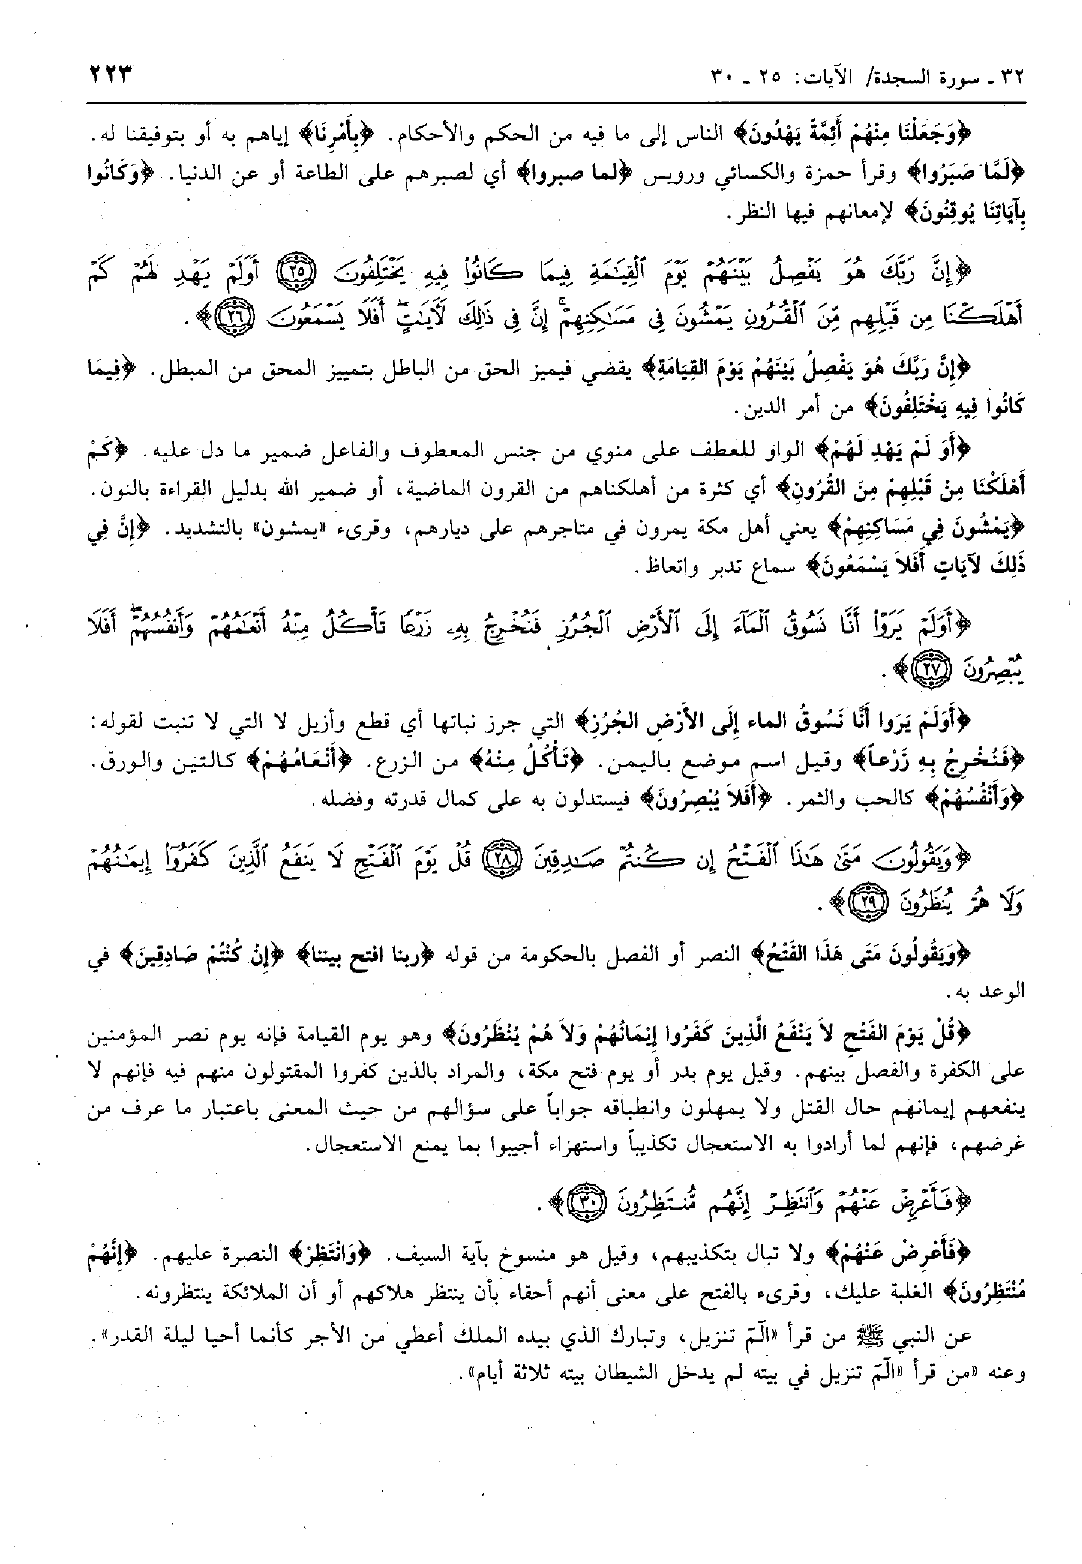 ٣٢ ـ سورة السجدة/ الآيات: ٢٥ ـ ٣٠ ٢٢٣
﴿وَجَعَلْنَا مِنْهُمْ أَئِمَّةً يَهْدُونَ﴾ الناس إلى ما فيه من الحكم والأحكام. ﴿بِأَمْرِنَا﴾ إياهم به أو بتوفيقنا له.
﴿لَمَّا صَبَرُوا﴾ وقرأ حمزة والكسائي ورويس ﴿لما صبروا﴾ أي لصبرهم على الطاعة أو عن الدنيا. ﴿وَكَانُوا
بِآيَاتِنَا يُوقِنُونَ﴾ لإمعانهم فيها النظر.
﴿إِنَّ رَبَّكَ هُوَ يَفْصِلُ بَيْنَهُمْ يَوْمَ ٱلْقِيَٰمَةِ فِيمَا كَانُوا۟ فِيهِ يَخْتَلِفُونَ ﴿٢٥﴾ أَوَلَمْ يَهْدِ لَهُمْ كَمْ
أَهْلَكْنَا مِن قَبْلِهِم مِّنَ ٱلْقُرُونِ يَمْشُونَ فِى مَسَٰكِنِهِمْ ۚ إِنَّ فِى ذَٰلِكَ لَءَايَٰتٍ ۖ أَفَلَا يَسْمَعُونَ ﴿٢٦﴾﴾.
﴿إِنَّ رَبَّكَ هُوَ يَفْصِلُ بَيْنَهُمْ يَوْمَ القِيَامَةِ﴾ يقضي فيميز الحق من الباطل بتمييز المحق من المبطل. ﴿فِيمَا
كَانُوا فِيهِ يَخْتَلِفُونَ﴾ من أمر الدين.
﴿أَوَ لَمْ يَهْدِ لَهُمْ﴾ الواو للعطف على منوي من جنس المعطوف والفاعل ضمير ما دل عليه. ﴿كَمْ
أَهْلَكْنَا مِنْ قَبْلِهِمْ مِنَ القُرُونِ﴾ أي كثرة من أهلكناهم من القرون الماضية، أو ضمير الله بدليل القراءة بالنون.
﴿يَمْشُونَ فِي مَسَاكِنِهِمْ﴾ يعني أهل مكة يمرون في متاجرهم على ديارهم، وقرىء «يمشون» بالتشديد. ﴿إِنَّ فِي
ذَلِكَ لآيَاتٍ أَفَلاَ يَسْمَعُونَ﴾ سماع تدبر واتعاظ.
﴿أَوَلَمْ يَرَوْا۟ أَنَّا نَسُوقُ ٱلْمَآءَ إِلَى ٱلْأَرْضِ ٱلْجُرُزِ فَنُخْرِجُ بِهِۦ زَرْعًا تَأْكُلُ مِنْهُ أَنْعَٰمُهُمْ وَأَنفُسُهُمْ ۖ أَفَلَا
يُبْصِرُونَ ﴿٢٧﴾﴾.
﴿أَوَلَمْ يَرَوا أَنَّا نَسُوقُ الماء إِلَى الأَرْضِ الجُرُزِ﴾ التي جرز نباتها أي قطع وأزيل لا التي لا تنبت لقوله:
﴿فَنُخْرِجُ بِهِ زَرْعاً﴾ وقيل اسم موضع باليمن. ﴿تَأْكُلُ مِنْهُ﴾ من الزرع. ﴿أَنْعَامُهُمْ﴾ كالتين والورق.
﴿وَأَنْفُسُهُمْ﴾ كالحب والثمر. ﴿أَفَلاَ يُبْصِرُونَ﴾ فيستدلون به على كمال قدرته وفضله.
﴿وَيَقُولُونَ مَتَىٰ هَٰذَا ٱلْفَتْحُ إِن كُنتُمْ صَٰدِقِينَ ﴿٢٨﴾ قُلْ يَوْمَ ٱلْفَتْحِ لَا يَنفَعُ ٱلَّذِينَ كَفَرُوٓا۟ إِيمَٰنُهُمْ
وَلَا هُمْ يُنظَرُونَ ﴿٢٩﴾﴾.
﴿وَيَقُولُونَ مَتَى هَذَا الفَتْحُ﴾ النصر أو الفصل بالحكومة من قوله ﴿ربنا افتح بيننا﴾ ﴿إِنْ كُنْتُمْ صَادِقِينَ﴾ في
الوعد به.
﴿قُلْ يَوْمَ الفَتْحِ لاَ يَنْفَعُ الَّذِينَ كَفَرُوا إِيمَانُهُمْ وَلاَ هُمْ يُنْظَرُونَ﴾ وهو يوم القيامة فإنه يوم نصر المؤمنين
على الكفرة والفصل بينهم. وقيل يوم بدر أو يوم فتح مكة، والمراد بالذين كفروا المقتولون منهم فيه فإنهم لا
ينفعهم إيمانهم حال القتل ولا يمهلون وانطباقه جواباً على سؤالهم من حيث المعنى باعتبار ما عرف من
غرضهم، فإنهم لما أرادوا به الاستعجال تكذيباً واستهزاء أجيبوا بما يمنع الاستعجال.
﴿فَأَعْرِضْ عَنْهُمْ وَٱنتَظِرْ إِنَّهُم مُّنتَظِرُونَ ﴿٣٠﴾﴾.
﴿فَأَعْرِضْ عَنْهُمْ﴾ ولا تبال بتكذيبهم، وقيل هو منسوخ بآية السيف. ﴿وَانْتَظِرْ﴾ النصرة عليهم. ﴿إِنَّهُمْ
مُنْتَظِرُونَ﴾ الغلبة عليك، وقرىء بالفتح على معنى أنهم أحقاء بأن ينتظر هلاكهم أو أن الملائكة ينتظرونه.
عن النبي ﷺ من قرأ «الٓمٓ تنزيل، وتبارك الذي بيده الملك أعطي من الأجر كأنما أحيا ليلة القدر».
وعنه «من قرأ «الٓمٓ تنزيل في بيته لم يدخل الشيطان بيته ثلاثة أيام».